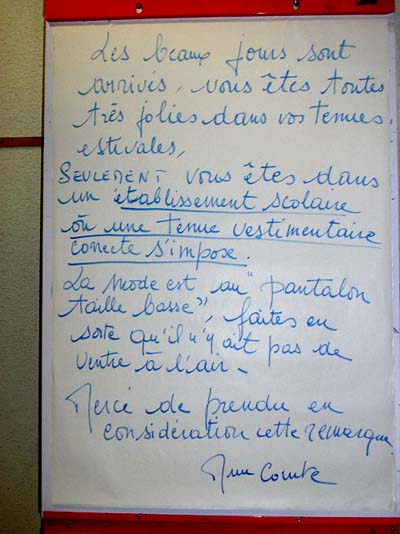 Les beaux jours sont
arrivés, vous êtes toutes
très jolies dans vos tenues
estivales,
SEULEMENT vous êtes dans
un établissement scolaire
où une tenue vestimentaire
correcte s'impose.
La mode est au "pantalon
taille basse", faites en
sorte qu'il n'y ait pas de
ventre à l'air.
Merci de prendre en
considération cette remarque